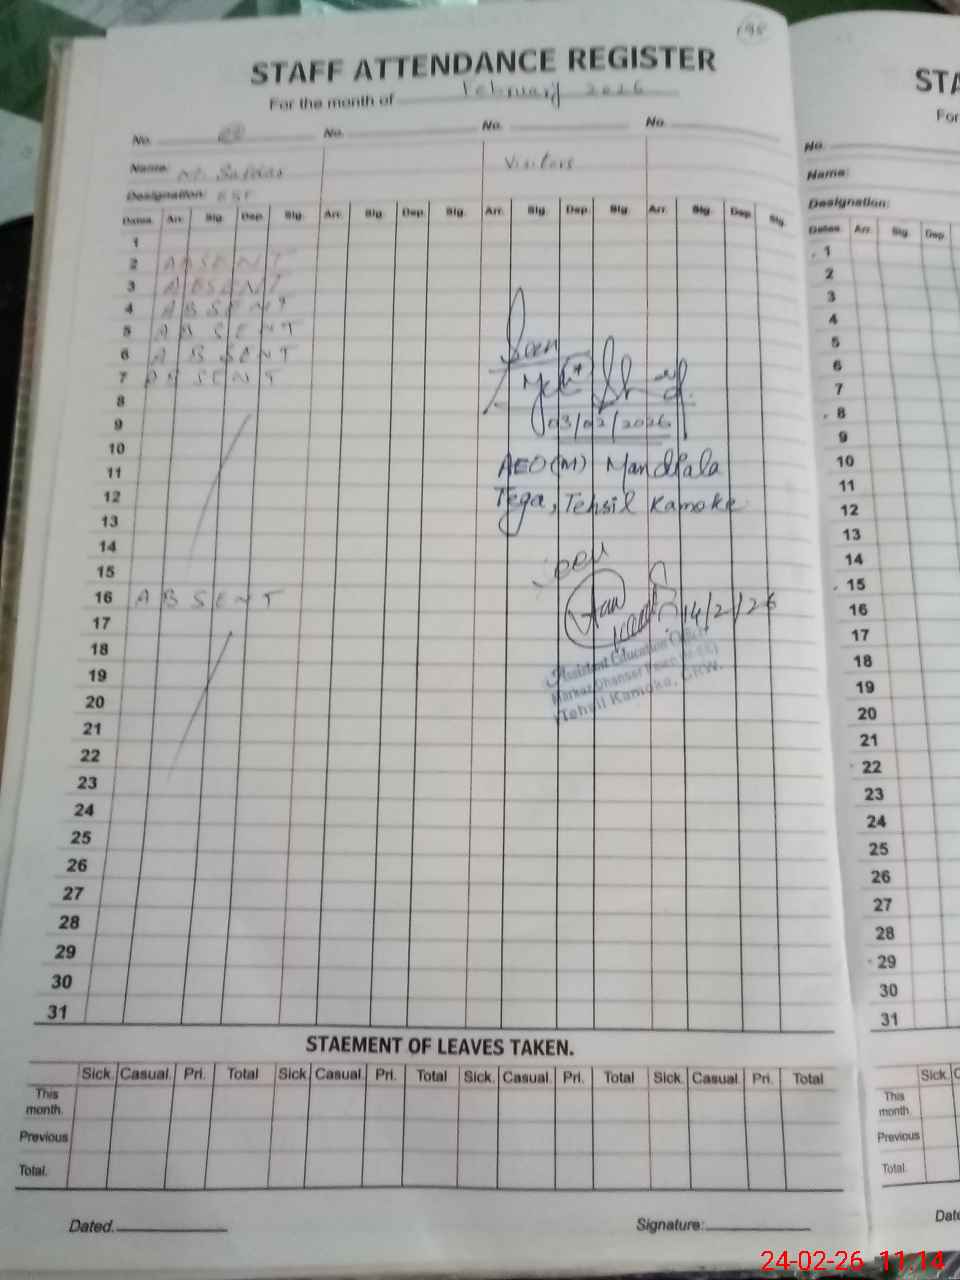 195
STAFF ATTENDANCE REGISTER
For the month of February 2026
No. No. No. No.
Name: Visitors
Designation: ESE
Dates. Arr. Sig. Dep. Sig. Arr. Sig. Dep. Sig. Arr. Sig. Dep. Sig. Arr. Sig. Dep. Sig.
1
2 ABSENT
3 ABSENT
4 ABSENT
5 ABSENT
6 ABSENT
7 ABSENT
8
9
10
11
12
13
14
15
16 ABSENT
17
18
19
20
21
22
23
24
25
26
27
28
29
30
31
Seen
03/02/2026
AEO(M) Mandiala
Tega, Tehsil Kamoke
Seen
14/2/26
Assistant Education Officer
Tehsil Kamoke, GRW.
STAEMENT OF LEAVES TAKEN.
Sick. Casual. Pri. Total Sick. Casual. Pri. Total Sick. Casual. Pri. Total Sick. Casual. Pri. Total
This month.
Previous
Total.
Dated. Signature:
STA
For
No.
Name:
Designation:
Dates Arr. Sig. Dep.
1
2
3
4
5
6
7
8
9
10
11
12
13
14
15
16
17
18
19
20
21
22
23
24
25
26
27
28
29
30
31
Sick. C
This month.
Previous
Total.
Date
24-02-26 11:14